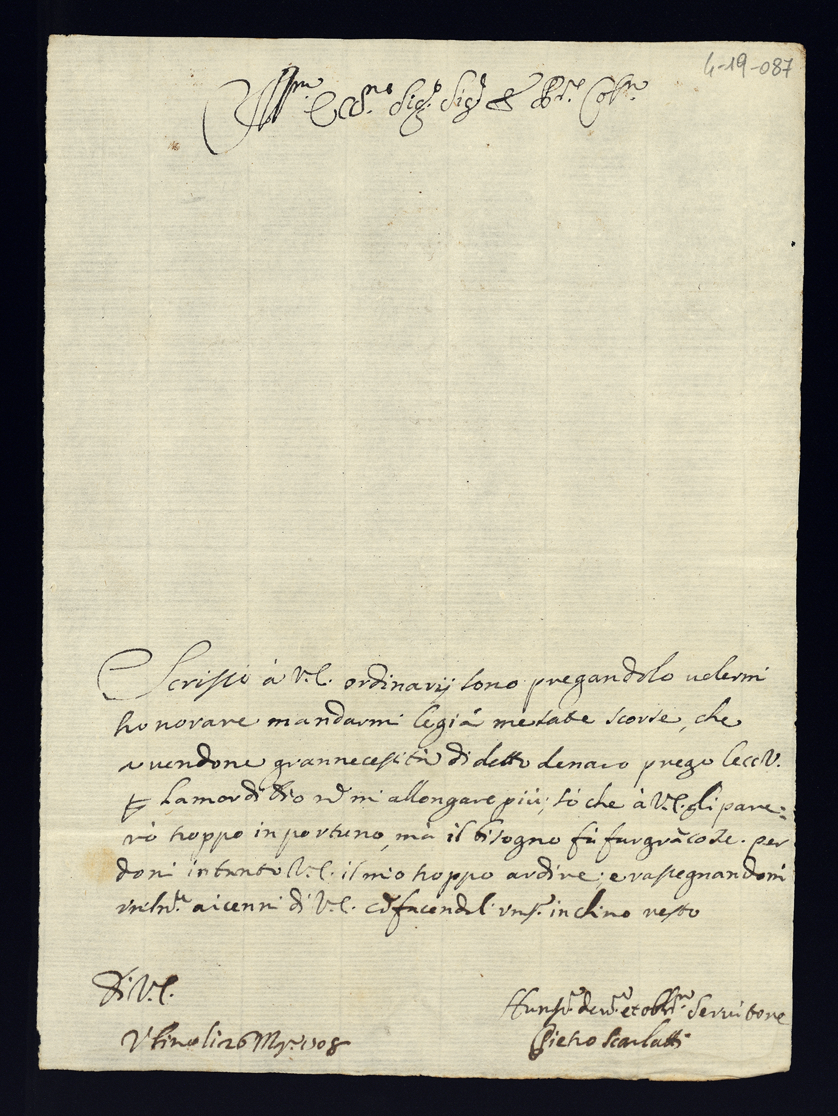 4-19-087
Ill.mo Ecc.mo Sig.r Sig.r e P.ne Col.mo
Scrissi à V.E. ordinarij sono pregandolo uolermi
honorare mandarmi le già mesate scorse, che
avendone gran necessità di detto denaro prego l'ecc. V.
l'amor di Dio nõ mi allongare più; sò che à V.E. gli pare=
rò troppo inportuno, mà il bisogno fà far grã cose. per
doni intanto V.E. il mio troppo ardire; e rassegnandomi
ai cenni di V.E. cõ facendoli inclino resto
Di V.E.
Vrbino li 26 Mag.o 1708
Hum.mo deu.mo et obl.mo Seruitore
Pietro Scarlatti